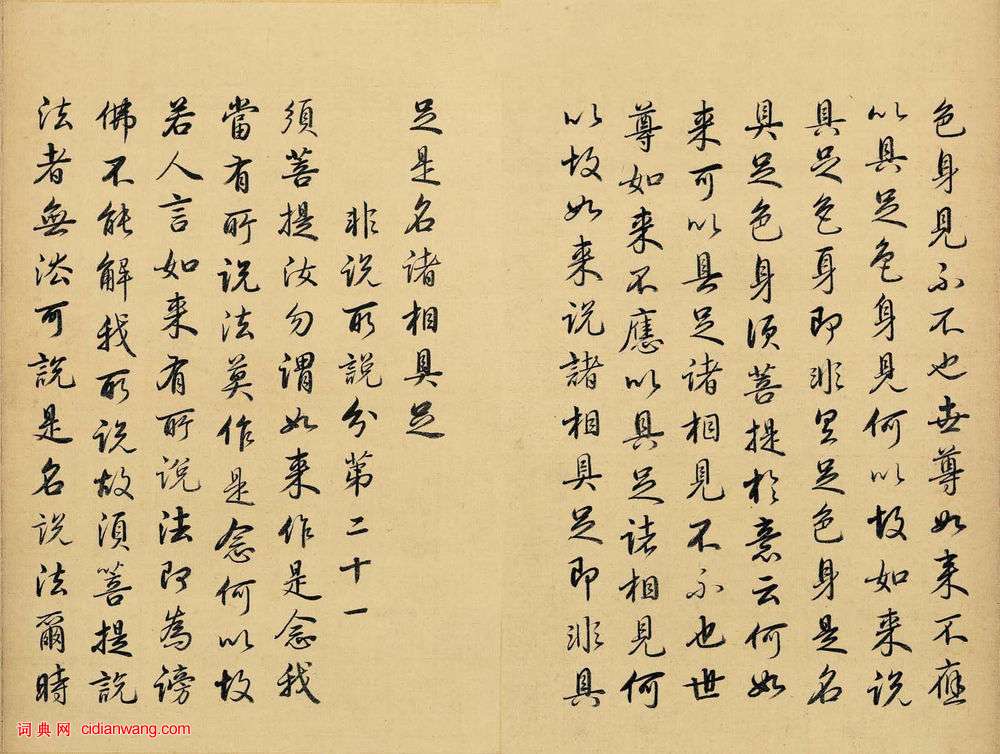 色身見不不也世尊如来不應
以具足色身見何以故如来説
具足色身即非具足色身是名
具足色身須菩提於意云何如
来可以具足諸相見不不也世
尊如来不應以具足諸相見何
以故如来説諸相具足即非具
足是名諸相具足
非説所説分第二十一
須菩提汝勿謂如来作是念我
當有所説法莫作是念何以故
若人言如来有所説法即為謗
佛不能解我所説故須菩提説
法者無法可説是名説法爾時
词典网 cidianwang.com